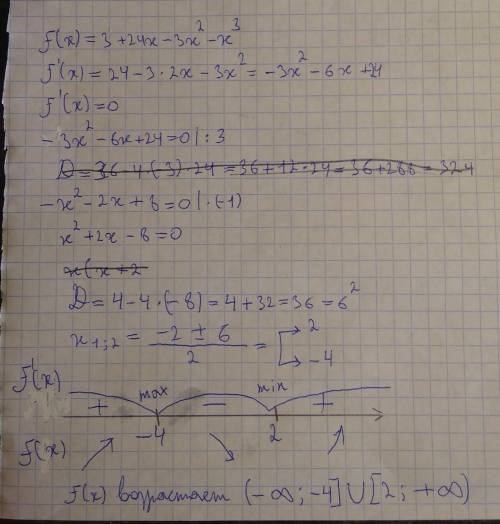 f(x) = 3 + 24x - 3x² - x³
f'(x) = 24 - 3 · 2x - 3x² = -3x² - 6x + 24
f'(x) = 0
-3x² - 6x + 24 = 0 | : 3
D = 36 - 4 · (-3) · 24 = 36 + 12 · 24 = 36 + 288 = 324
-x² - 2x + 8 = 0 | · (-1)
x² + 2x - 8 = 0
x(x + 2
D = 4 - 4 · (-8) = 4 + 32 = 36 = 6²
x₁;₂ = (-2 ± 6)/2 = [→ 2 → -4
f'(x) + max - min +
-4 2
f(x) ↗ ↘ ↗
f(x) возрастает (-∞; -4] ∪ [2; +∞)